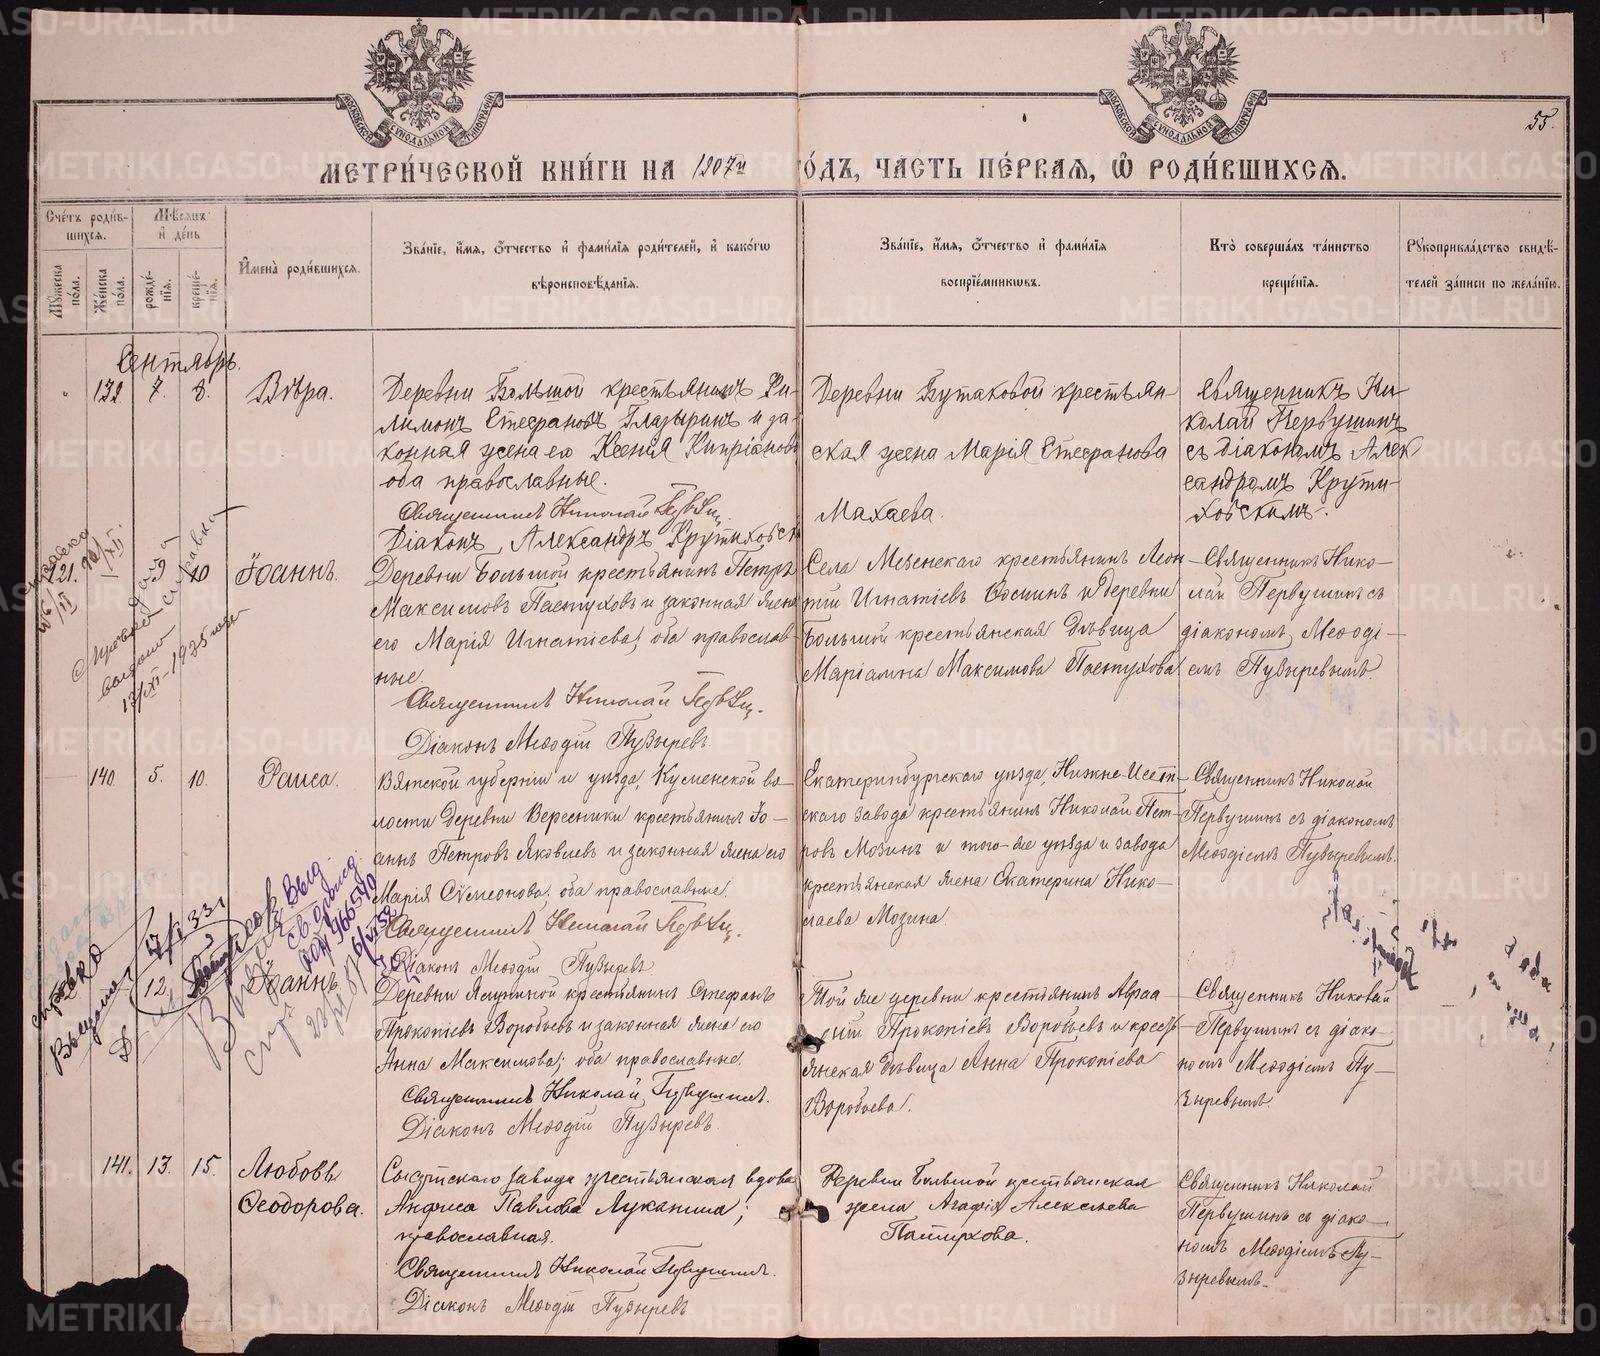 55.
МЕТРИ́ЧЕСКОЙ КНИ́ГИ НА 1907й ГО́ДЪ, ЧА́СТЬ ПЕ́РВАЯ, Ѽ РОДИ́ВШИХСЯ.
Сче́тъ роди́в-
шихся.
Му́жеска по́ла.
Же́нска по́ла.
Мѣ́сяцъ и де́нь
рожде́-
нія.
креще́-
нія.
Имена̀ роди́вшихся.
Зва́ніе, и́мя, о́тчество и фами́лія роди́телей, и како́гѡ
вѣроисповѣ́данія.
Зва́ніе, и́мя, о́тчество и фами́лія
воспріе́мниковъ.
Кто̀ соверша́лъ та́инство
креще́нія.
Рукоприкла́дство свидѣ́-
телей за́писи по жела́нію.
Сентябрь.
139
7.
8.
Вѣра.
Деревни Большой крестьянинъ Фи-
лимонъ Стефановъ Глазыринъ и за-
конная жена его Ксенія Кипріанова
оба православные.
Священникъ Николай
Діаконъ Александръ Крутиховск
Деревни Бутаковой крестьян-
ская жена Марія Стефанова
Махаева.
Священникъ Ни-
колай Первушинъ
съ діакономъ Алек
сандромъ Крути-
ховскимъ.
121.
9
10
Іоаннъ.
Деревни Большой крестьянинъ Петръ
Максимовъ Пастуховъ и законная жена
его Марія Игнатіева; оба православ-
ные.
Священникъ Николай
Діаконъ Меѳодій Пузыревъ
Села Мезенскаго крестьянинъ Леон
тій Игнатіевъ Осминъ и деревни
Большой крестьянская дѣвица
Маріамна Максимова Пастухова
Священникъ Нико-
лай Первушинъ съ
діакономъ Меѳоді-
емъ Пузыревымъ.
справка
13/XI-1925 года
140
5.
10.
Раиса.
Вятской губерніи и уѣзда, Куменской во-
лости деревни Вересники крестьянинъ Іо-
аннъ Петровъ Яковлевъ и законная жена его
Марія Сѵмеонова; оба православные.
Священникъ Николай
Діаконъ Меѳодій Пузыревъ
Екатеринбургскаго уѣзда, Нижне-Исетт-
скаго завода крестьянинъ Николай Пет-
ровъ Мозинъ и того-же уѣзда и завода
крестьянская жена Екатерина Нико-
лаева Мозина
Священникъ Николай
Первушинъ съ діакономъ
Меѳодіемъ Пузыревымъ.
справка
Выд.
12.
Іоаннъ
Деревни Ягушиной крестьянинъ Стефанъ
Прокопіевъ Воробьевъ и законная жена его
Анна Максимова; оба православные.
Священникъ Николай Первушинъ.
Діаконъ Меѳодій Пузыревъ.
Той же деревни крестьянинъ Аѳана
сій Прокопіевъ Воробьевъ и кресть
янская дѣвица Анна Прокопіева
Воробьева.
Священникъ Николай
Первушинъ съ діако-
номъ Меѳодіемъ Пу-
зыревымъ.
141.
13.
15.
Любовь
Ѳеодорова.
Сысертскаго завода крестьянская вдова
Анфиса Павлова Луканина;
православная.
Священникъ Николай Первушинъ.
Діаконъ Меѳодій Пузыревъ
Деревни Большой крестьянская
жена Агафія Алексѣева
Пастухова.
Священникъ Николай
Первушинъ съ діако-
номъ Меѳодіемъ Пу-
зыревымъ.
METRIKI.GASO-URAL.RU